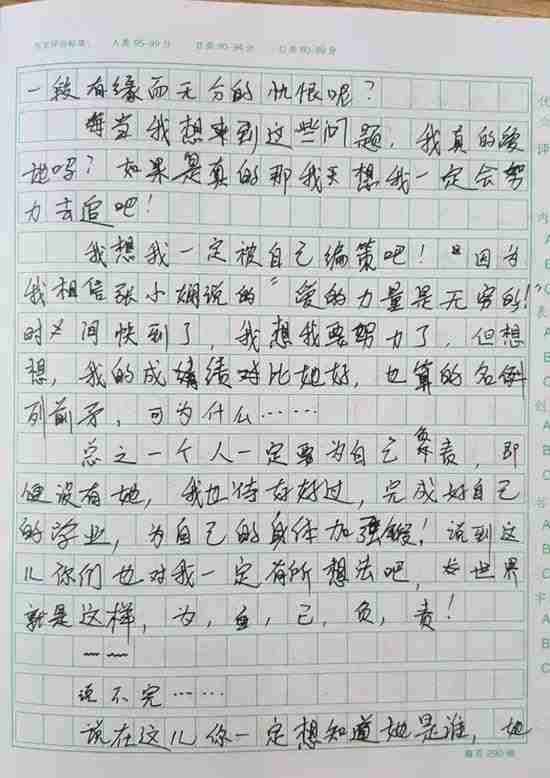 作文评分标准: A类 95-99分 B类 90-94分 C类 80-89分
一段有缘而无分的仇恨呢?
每当我想来到这些问题,我真的爱
她吗?如果是真的那我天想我一定会努
力去追吧!
我想我一定被自己编策吧!"因为
我相信张小娴说的"爱的力量是无穷的!"
时间快到了,我想我要努力了,但想
想,我的成绩对比她好,也算的名例
列前矛,可为什么……
总之一个人一定要为自己负责,即
便没有她,我也得好好过,完成好自己
的学业,为自己的身体加强锻!说到这
儿你们也对我一定有所想法吧,世界
就是这样,为,自,己,负,责!
~~
说不完……
说在这儿你一定想知道她是谁,她
每页290格